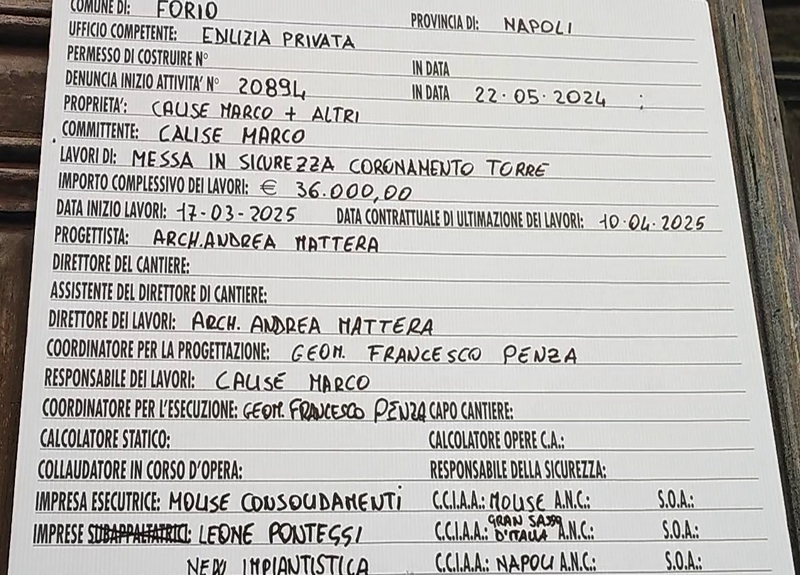 COMUNE DI: FORIO PROVINCIA DI: NAPOLI
UFFICIO COMPETENTE: EDILIZIA PRIVATA
PERMESSO DI COSTRUIRE N° IN DATA
DENUNCIA INIZIO ATTIVITA' N° 20894 IN DATA 22.05.2024
PROPRIETA': CALISE MARCO + ALTRI
COMMITTENTE: CALISE MARCO
LAVORI DI: MESSA IN SICUREZZA CORONAMENTO TORRE
IMPORTO COMPLESSIVO DEI LAVORI: € 36.000,00
DATA INIZIO LAVORI: 17-03-2025 DATA CONTRATTUALE DI ULTIMAZIONE DEI LAVORI: 10.04.2025
PROGETTISTA: ARCH. ANDREA MATTERA
DIRETTORE DEL CANTIERE:
ASSISTENTE DEL DIRETTORE DI CANTIERE:
DIRETTORE DEI LAVORI: ARCH. ANDREA MATTERA
COORDINATORE PER LA PROGETTAZIONE: GEOM. FRANCESCO PENZA
RESPONSABILE DEI LAVORI: CALISE MARCO
COORDINATORE PER L'ESECUZIONE: GEOM. FRANCESCO PENZA CAPO CANTIERE:
CALCOLATORE STATICO: CALCOLATORE OPERE C.A.:
COLLAUDATORE IN CORSO D'OPERA: RESPONSABILE DELLA SICUREZZA:
IMPRESA ESECUTRICE: MOLISE CONSOLIDAMENTI C.C.I.A.A.: MOLISE A.N.C.: S.O.A.:
IMPRESE SUBAPPALTATRICI: LEONE PONTEGGI C.C.I.A.A.: GRAN SASSO D'ITALIA A.N.C.: S.O.A.:
IMPIANTISTICA C.C.I.A.A.: NAPOLI A.N.C.: S.O.A.: